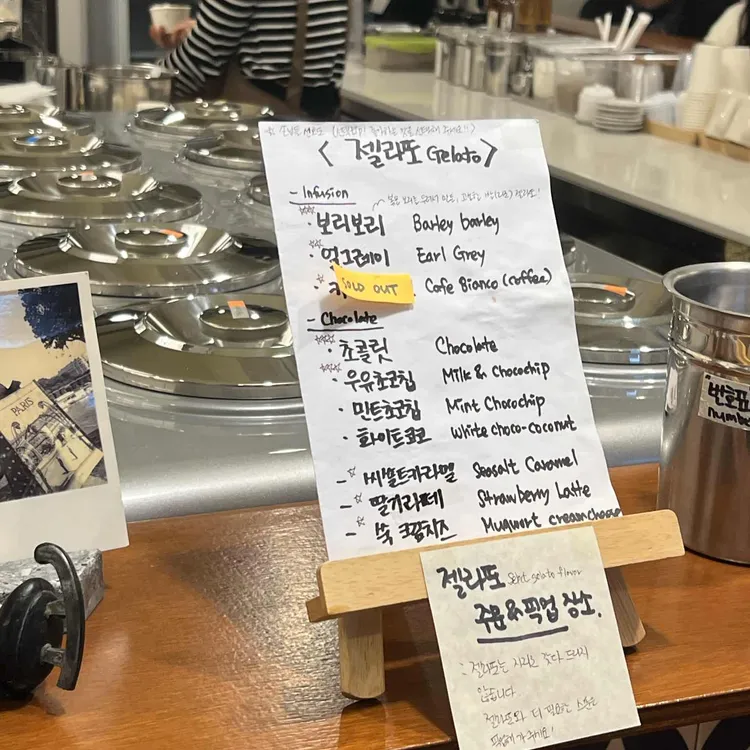 < 젤라또 Gelato >
- Infusion
· 보리보리 Barley barley
· 얼그레이 Earl Grey
SOLD OUT Cafe Bianco (coffee)
- Chocolate
· 초콜릿 Chocolate
· 우유초코칩 Milk & Chocochip
· 민트초코칩 Mint Chocochip
· 화이트코코 White choco-coconut
- 씨쏠트카라멜 Seasalt Caramel
- 딸기라떼 Strawberry Latte
- 쑥 크림치즈 Mugwort creamcheese
PARIS
번호표
numbe
젤라또 gelato flavor
주문 & 픽업 장소.
: 젤라또는 자리로 갖다 드리지
않습니다.
젤라또와 더 필요한 스푼은